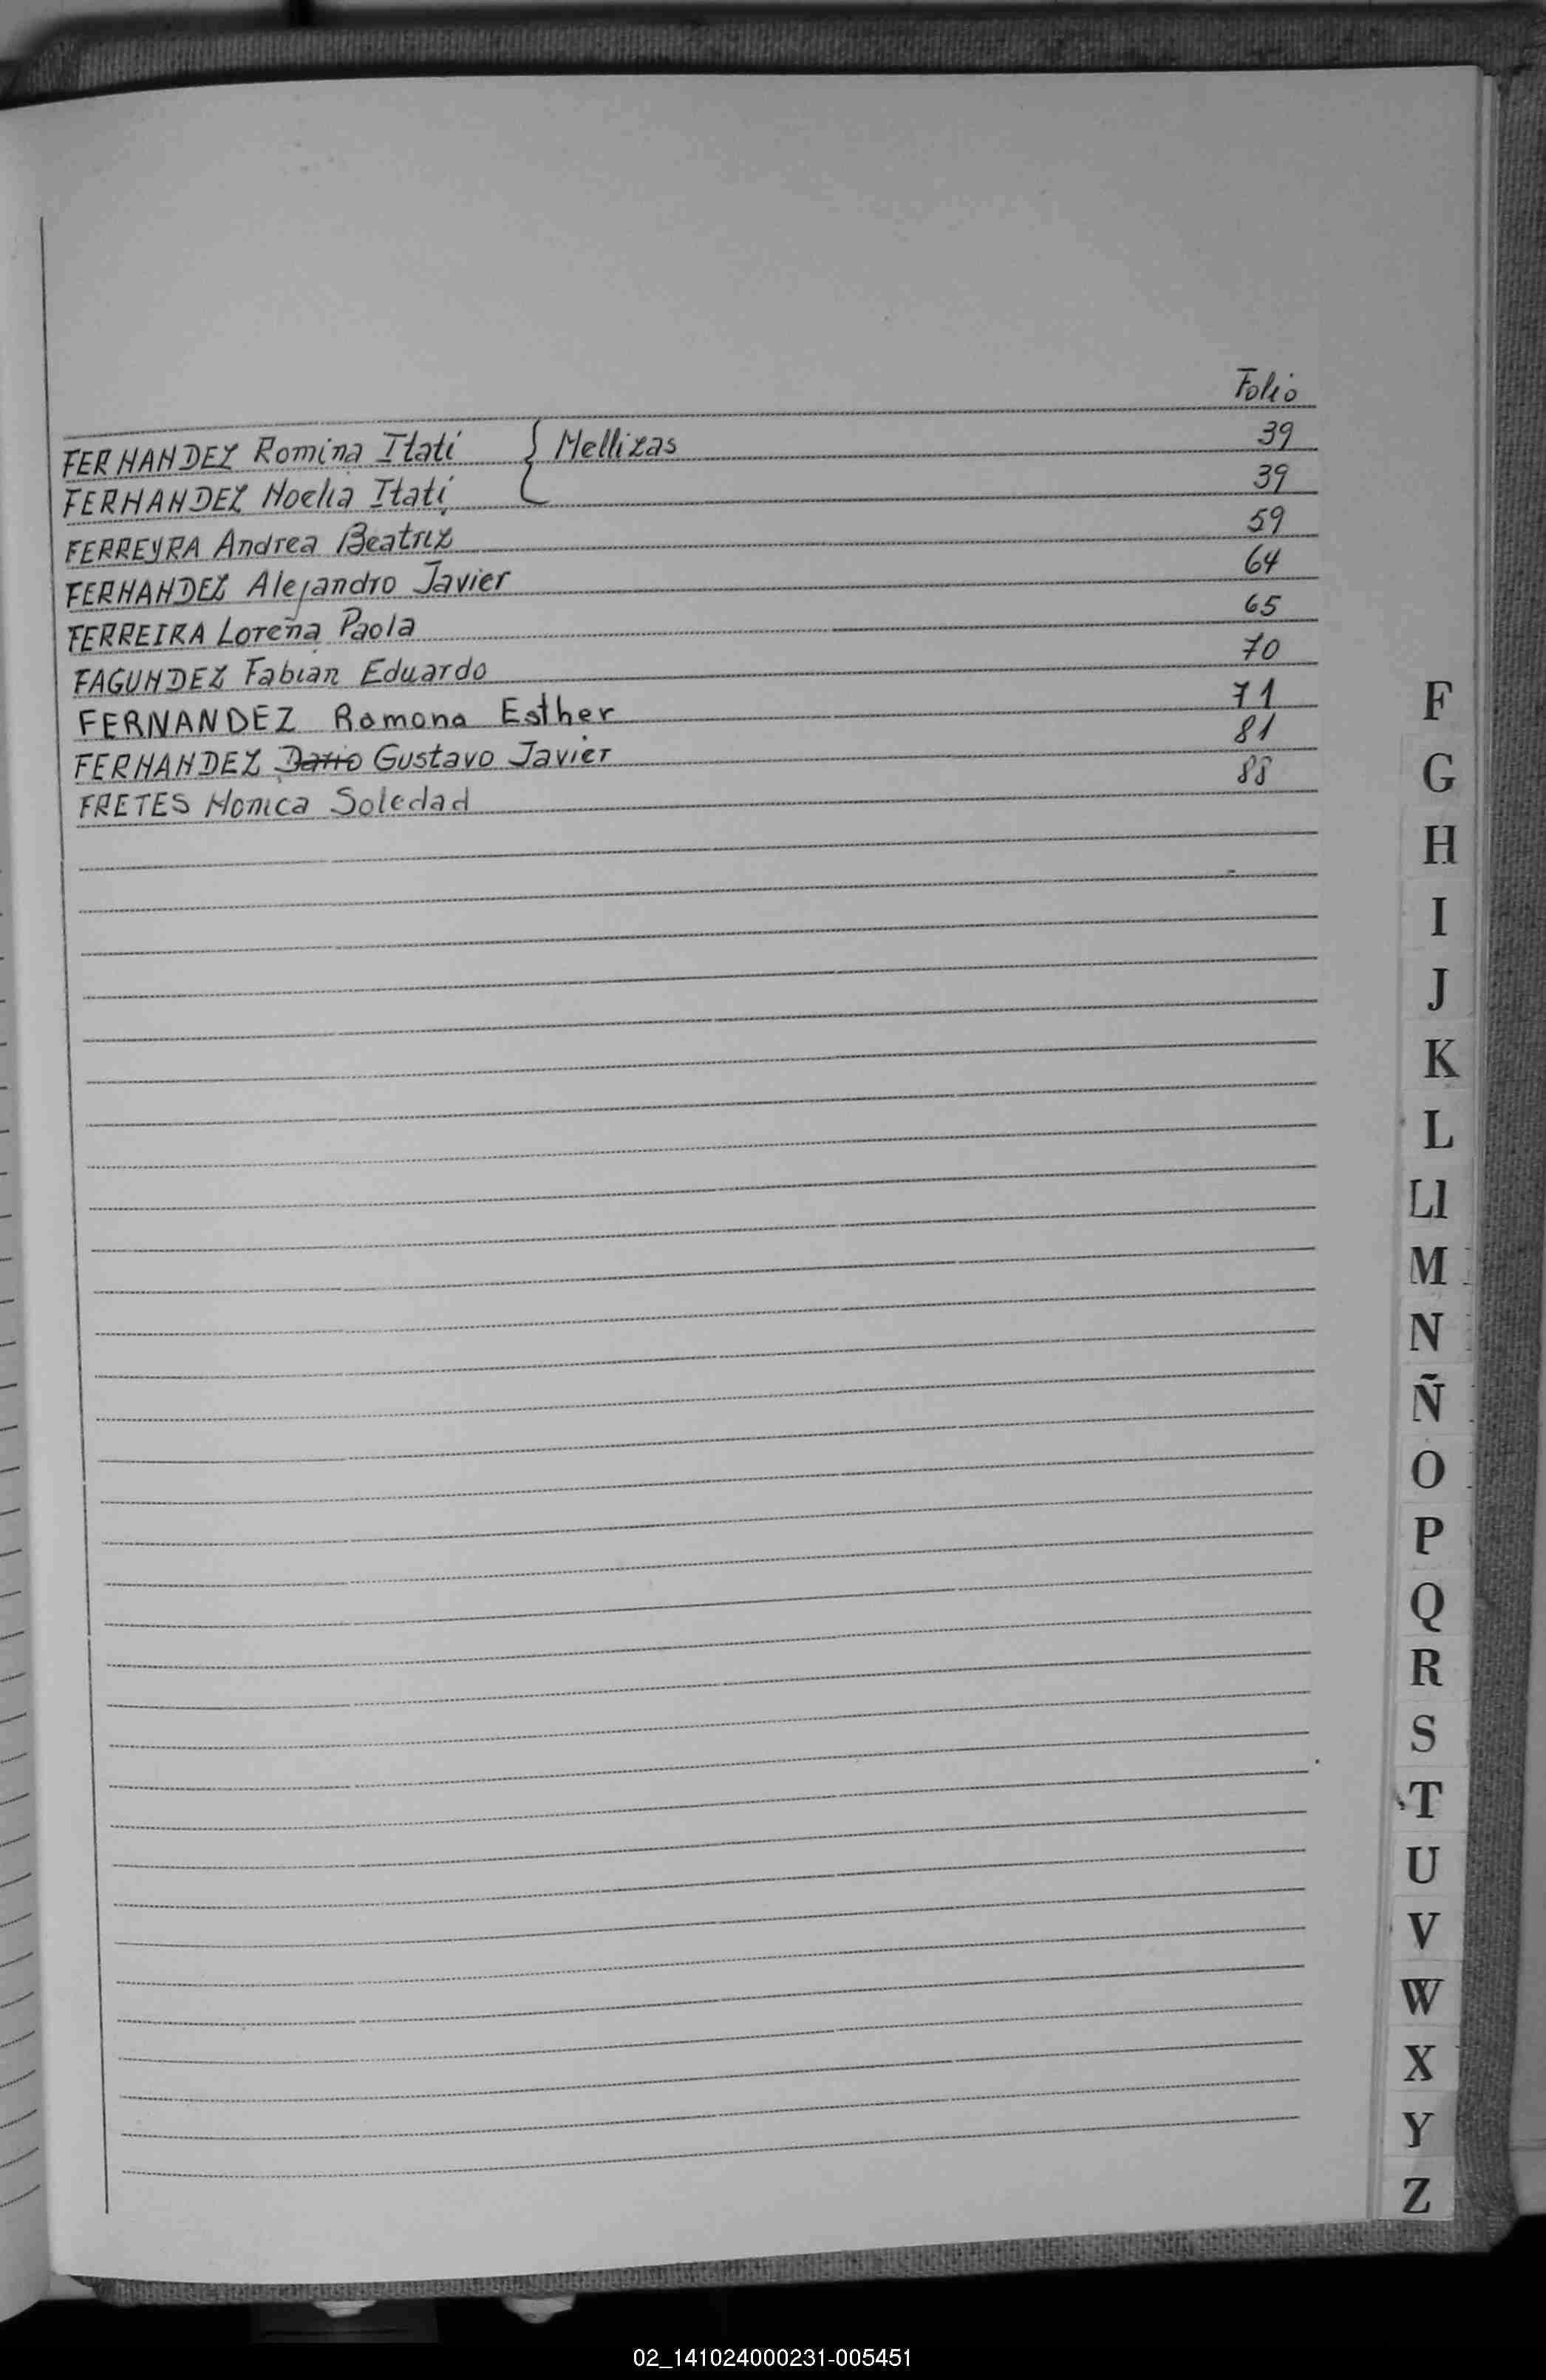 Folio
FERNANDEZ Romina Itatí } Mellizas 39
FERNANDEZ Noelia Itatí 39
FERREYRA Andrea Beatriz 59
FERNANDEZ Alejandro Javier 64
FERREIRA Lorena Paola 65
FAGUNDEZ Fabian Eduardo 70
FERNANDEZ Ramona Esther 71
FERNANDEZ Dario Gustavo Javier 81
FRETES Monica Soledad 88
F
G
H
I
J
K
L
Ll
M
N
Ñ
O
P
Q
R
S
T
U
V
W
X
Y
Z
02_141024000231-005451